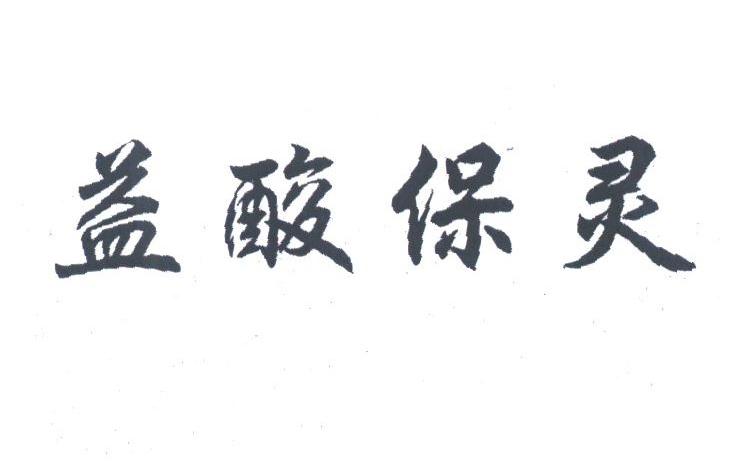 益酸保灵